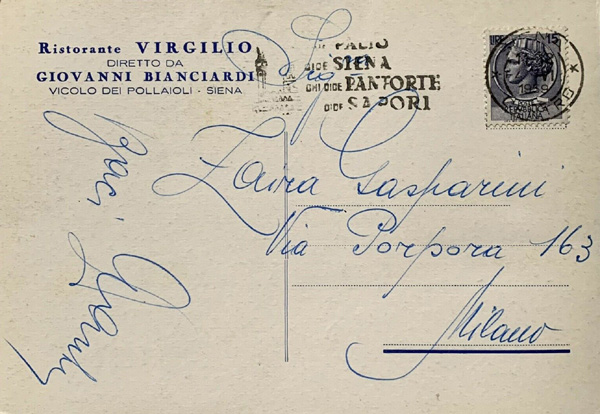 Ristorante VIRGILIO
DIRETTO DA
GIOVANNI BIANCIARDI
VICOLO DEI POLLAIOLI - SIENA
PALIO
DICE SIENA
CHI DICE PANFORTE
DICE SAPORI
LIRE 15
1959
ITALIANA
Sig.
Zaira Gasparini
Via Porpora 163
Milano
Baci